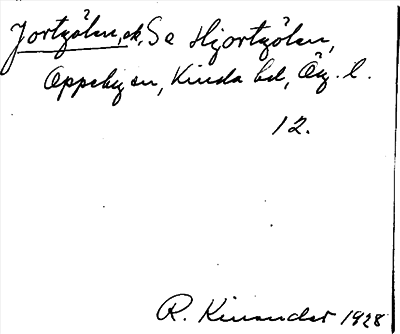 Jortgölen, ek, Se Hjortgölen,
Oppeby sn, Kinda hd, Ög. l.
12.
R. Kinander 1928